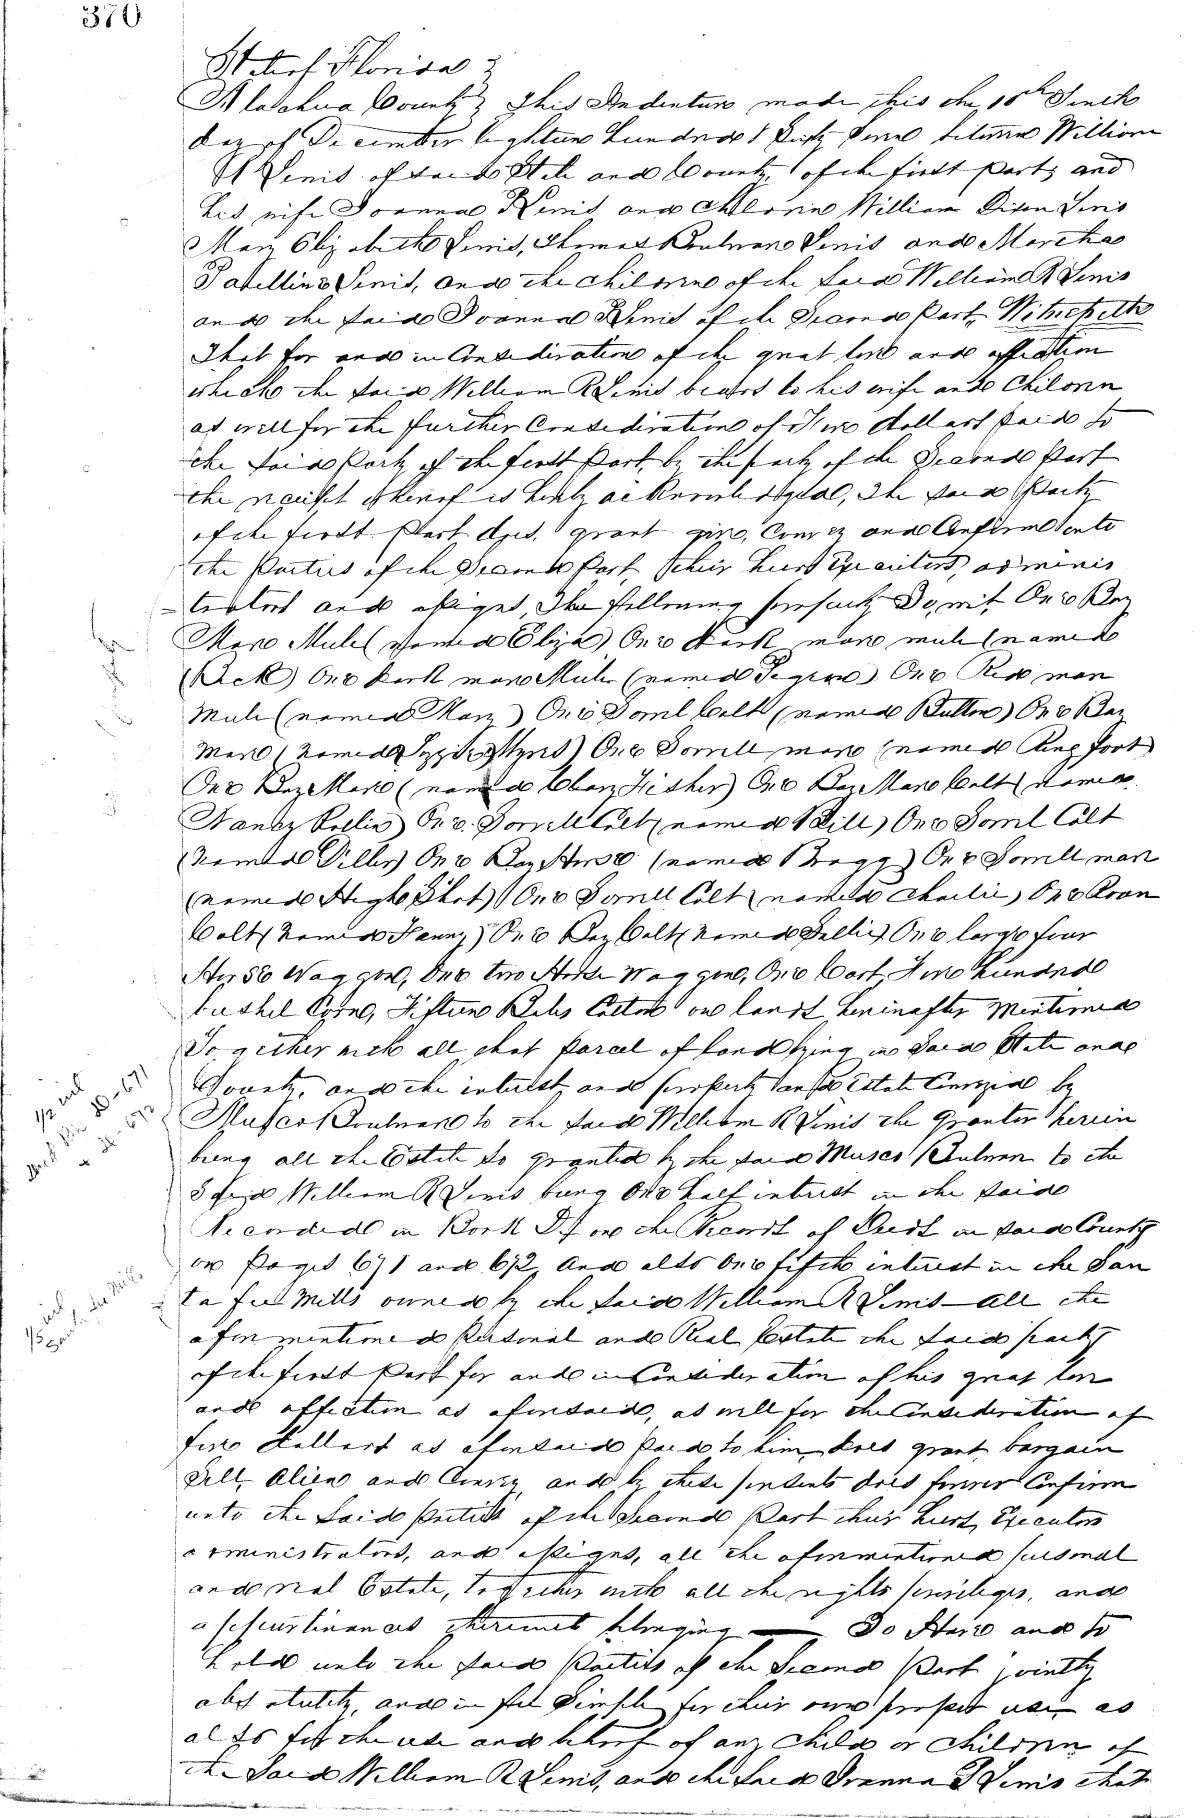 370
State of Florida }
Alachua County } This Indenture made this the 10th Tenth
day of December Eighteen hundred & Sixty Seven between William
R Lewis of said State and County, of the first part, and
his wife Joanna R Lewis and children William Dixon Lewis
Mary Elizabeth Lewis, Thomas Boulware Lewis and Martha
Lewis, and the children of the said William R Lewis
and the said Joanna R Lewis of the Second Part, Witnesseth
That for and in Consideration of the great love and affection
which the said William R Lewis bears to his wife and Children
as well for the further Consideration of Five Dollars paid to
the said Party of the first Part, by the party of the Second Part
the receipt whereof is hereby acknowledged, The said Party
of the first Part does, grant give, Convey and Confirm unto
the Parties of the Second Part, their heirs Executors, adminis
-trators and assigns, The following property To, wit, One Bay
Mare Mule (named Eliza) One Dark mare mule (named
(Beck) One Dark mare Mule (named ) One Red mare
Mule (named Mary) One Sorrel Colt (named Button) One Bay
Mare (named ) One Sorrell mare (named Ring foot)
One Bay Mare (named Clary Fisher) One Bay Mare Colt (named
Nancy ) One Sorrell Colt (named Bill) One Sorrel Colt
(named Diller) One Bay Horse (named Bragg) One Sorrell mare
(named High Shot) One Sorrell Colt (named Charlie) One Roan
Colt (named Fanny) One Bay Colt (named Sallie) One large four
Horse Waggon, One two Horse Waggon, One Cart, Five hundred
bushel Corn, Fifteen Bales Cotton on lands hereinafter Mentioned
Together with all that Parcel of land lying in Said State and
County, and the interest, and property and Estate Conveyed by
Musco Boulware to the said William R Lewis the Grantor herein
being all the Estate so granted by the said Musco Boulware to the
Said William R Lewis being One half interest in the said
Recorded in Book on the Records of Deeds in said County
on Pages 671 and 672, And also One fifth interest in the San
ta fee Mills owned by the said William R Lewis—All the
aforementioned Personal and Real Estate the said party
of the first Part for and in Consideration of his great love
and affection as aforesaid, as well for the Consideration of
five dollars as aforesaid paid to him, does grant, bargain
Sell, Alien and Convey, and by these presents does forever Confirm
unto the said parties of the Second Part their heirs, Executors
administrators, and assigns, all the aforementioned personal
and real Estate, together with all the rights privileges, and
appurtinances thereunto belonging — To Have and to
hold unto the said Parties of the Second Part jointly
absolutely, and in fee Simple for their own proper use, as
also for the use and behoof of any Child or Children of
the Said William R Lewis, and the said Joanna R Lewis that
1/2 int
671
672
1/5 int